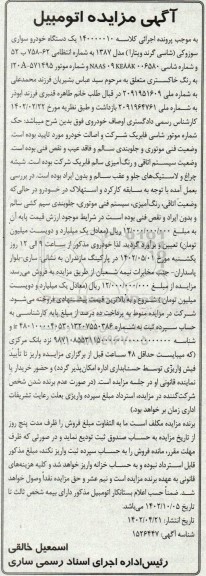 آگهی مزایده اتومبیل
به موجب پرونده اجرائی کلاسه ۱۴۰۰۰۰۰۱۰ یک دستگاه خودرو سواری
سوزوکی (شاسی گرند ویتارا) مدل ۱۳۸۷ به شماره انتظامی ۶۲-۷۵۸ ب ۵۲
و شماره شاسی NAAS ۰۹ KEAAK ۰۰۶۵۸۰ و شماره موتور ۵۷۱۴۹۵-J۲۰A
به رنگ خاکستری متعلق به مرحوم سید عباس بشیریان فرزند محمدعلی
به شماره ملی ۲۰۹۱۹۵۱۶۰۹ در قبال طلب خانم طاهره قنبری فرزند ایوذر
به شماره ملی ۲۰۹۱۹۶۴۷۶۱ بازداشت و طبق نظریه مورخ ۱۴۰۲/۰۲/۲۳
کارشناس رسمی دادگستری اوصاف خودروی فوق بدین شرح میباشد: حک
شماره موتور شاسی فابریک شرکت و اصالت خودرو مورد تایید بوده است
وضعیت فنی موتوری و جلوبندی سالم و فاقد عیب و نقص فنی بوده است
وضعیت سیستم اتاقی و رنگ‌آمیزی سالم فابریک شرکت بوده است. شیشه
چراغ و لاستیک‌های جلو و عقب سالم و بدون ایراد بوده است. در بررسی
بعمل آمده با توجه به مسابقه کارکرد و استهلاک در خودرو در حالی‌که
وضعیت اتاقی، رنگ‌آمیزی، سیستم فنی موتوری، جلوبندی سیم کشی سالم
و بدون ایراد و نقص فنی بوده است در شرایط موجود ارزش قیمت پایه آن
به مبلغ ۱۲/۰۰۰/۰۰۰/۰۰۰ ریال (معادل یک میلیارد و دویست میلیون
تومان) تعیین و برآورد گردید. لذا خودروی مذکور از ساعت ۹ الی ۱۲ روز
یکشنبه مورخ ۱۴۰۲/۰۵/۰۱ در پارکینگ مازندران به نشانی: ساری-بلوار
پاسداران- جنب مخابرات نیمه شعبان از طریق مزایده به فروش می‌رسد.
مزایده از مبلغ ۱۲/۰۰۰/۰۰۰/۰۰۰ ریال (معادل یک میلیارد و دویست
میلیون تومان) شروع و به بالاترین قیمت پیشنهادی فروخته می‌شود.
شرکت در مزایده منوط به پرداخت ده درصد از مبلغ پایه کارشناسی به
حساب سپرده ثبت به شماره
شناسه نزد بانک مرکزی
(که میبایست حداقل ۴۸ ساعت قبل از برگزاری مزایده واریز تا تأیید
فیش واریزی توسط حسابداری اداره امکان‌پذیر گردد) و حضور خریدار یا
نماینده قانونی او در جلسه است. (در صورت عدم برنده شدن شخص
شرکت‌کننده در مزایده، استرداد مبلغ سپرده واریزی بعلت رعایت تشریفات
اداری زمان بر خواهد بود.)
برنده مزایده مکلف است ما به التفاوت مبلغ فروش را ظرف مدت پنج روز
از تاریخ مزایده به حساب صندوق ثبت تودیع نماید و در صورتی که ظرف
مهلت مقرر، مانده فروش را به حساب سپرده ثبت واریز نکند، مبلغ مذکور
قابل استرداد نبوده و به حساب خزانه واریز خواهد شد و کلیه هزینه‌های
قانونی به عهده برنده مزایده است و نیم عشر و حق مزایده نقداً وصول خواهد
شد. ضمناً حسب اعلام بستانکار اتومبیل مذکور دارای بیمه شخص ثالث تا
تاریخ ۱۴۰۲/۱۰/۰۵ می‌باشد.
تاریخ انتشار: ۱۴۰۲/۰۴/۲۱
شناسه آگهی: ۱۵۲۶۴۴۷
اسمعیل خالقی
رئیس اداره اجرای اسناد رسمی ساری